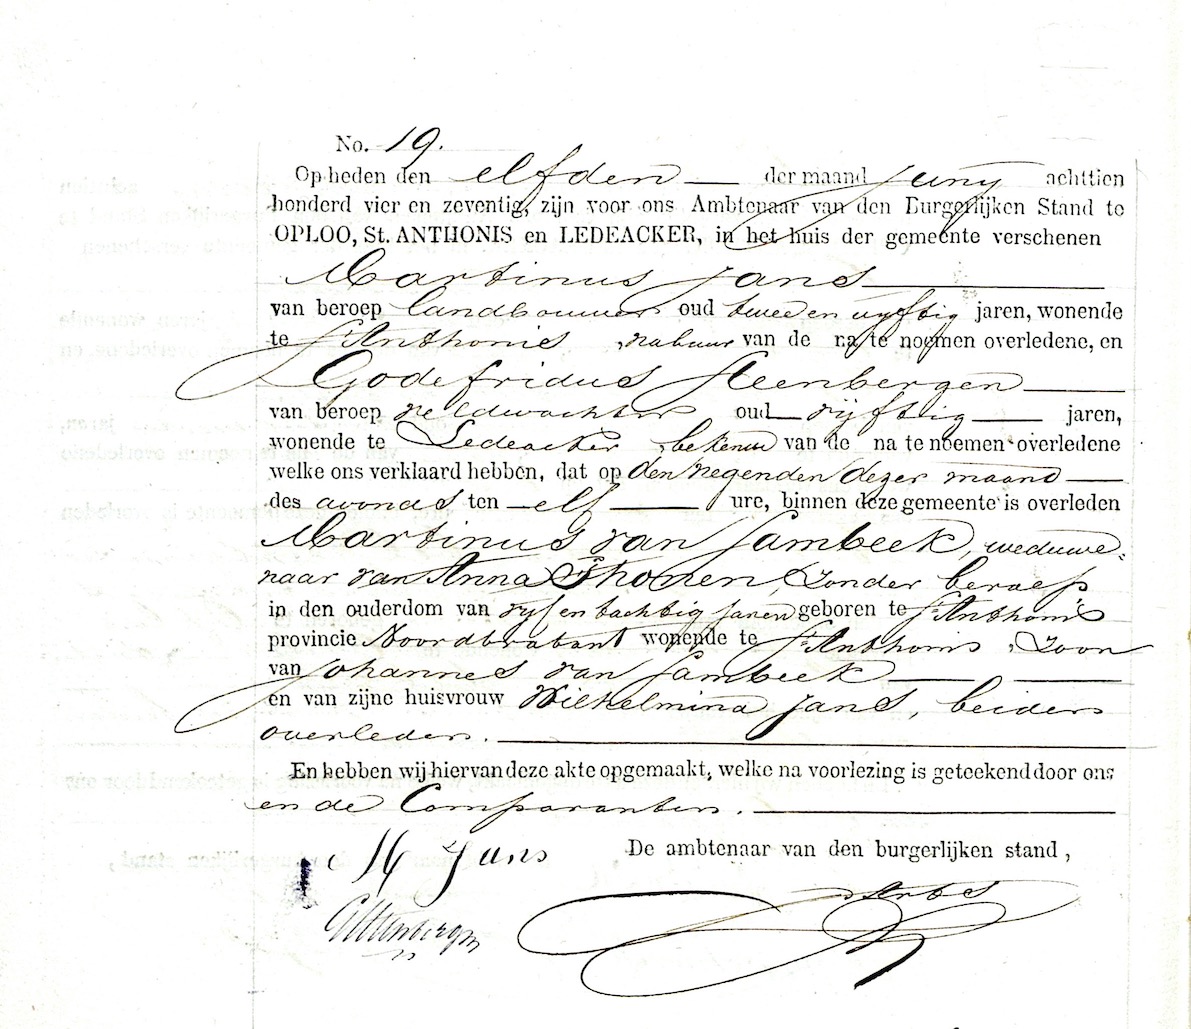 No. 19.
Op heden den elfden der maand Juny achttien
honderd vier en zeventig, zijn voor ons Ambtenaar van den Burgerlijken Stand te
OPLOO, St. ANTHONIS en LEDEACKER, in het huis der gemeente verschenen
Martinus Jans
van beroep landbouwer oud twee en vyftig jaren, wonende
te St Anthonis , nabuur van de na te noemen overledene, en
Godefridus Steenbergen
van beroep veldwachter oud vyftig jaren,
wonende te Ledeacker , bekende van de na te noemen overledene
welke ons verklaard hebben, dat op den negenden dezer maand
des avonds ten elf ure, binnen deze gemeente is overleden
Martinus van Sambeek, weduwe-
naar van Anna Thonen, zonder beroep
in den ouderdom van vyf en tachtig jaren geboren te St Anthonis
provincie Noordbrabant wonende te St Anthonis , Zoon
van Johannes van Sambeek
en van zijne huisvrouw Wilhelmina Jans, beiden
overleden.
En hebben wij hiervan deze akte opgemaakt, welke na voorlezing is geteekend door ons
en de Comparanten.
De ambtenaar van den burgerlijken stand,
M Jans
GSteenbergen